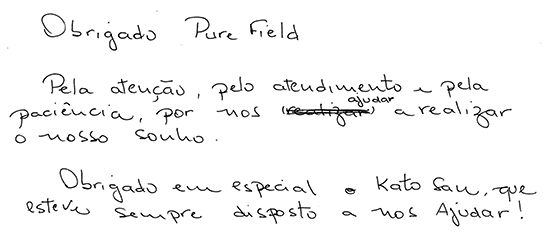 Obrigado Pure Field
Pela atenção, pelo atendimento e pela
paciência, por nos (realizar) ajudar a realizar
o nosso sonho.
Obrigado em especial o Kato San, que
esteve sempre disposto a nos Ajudar!